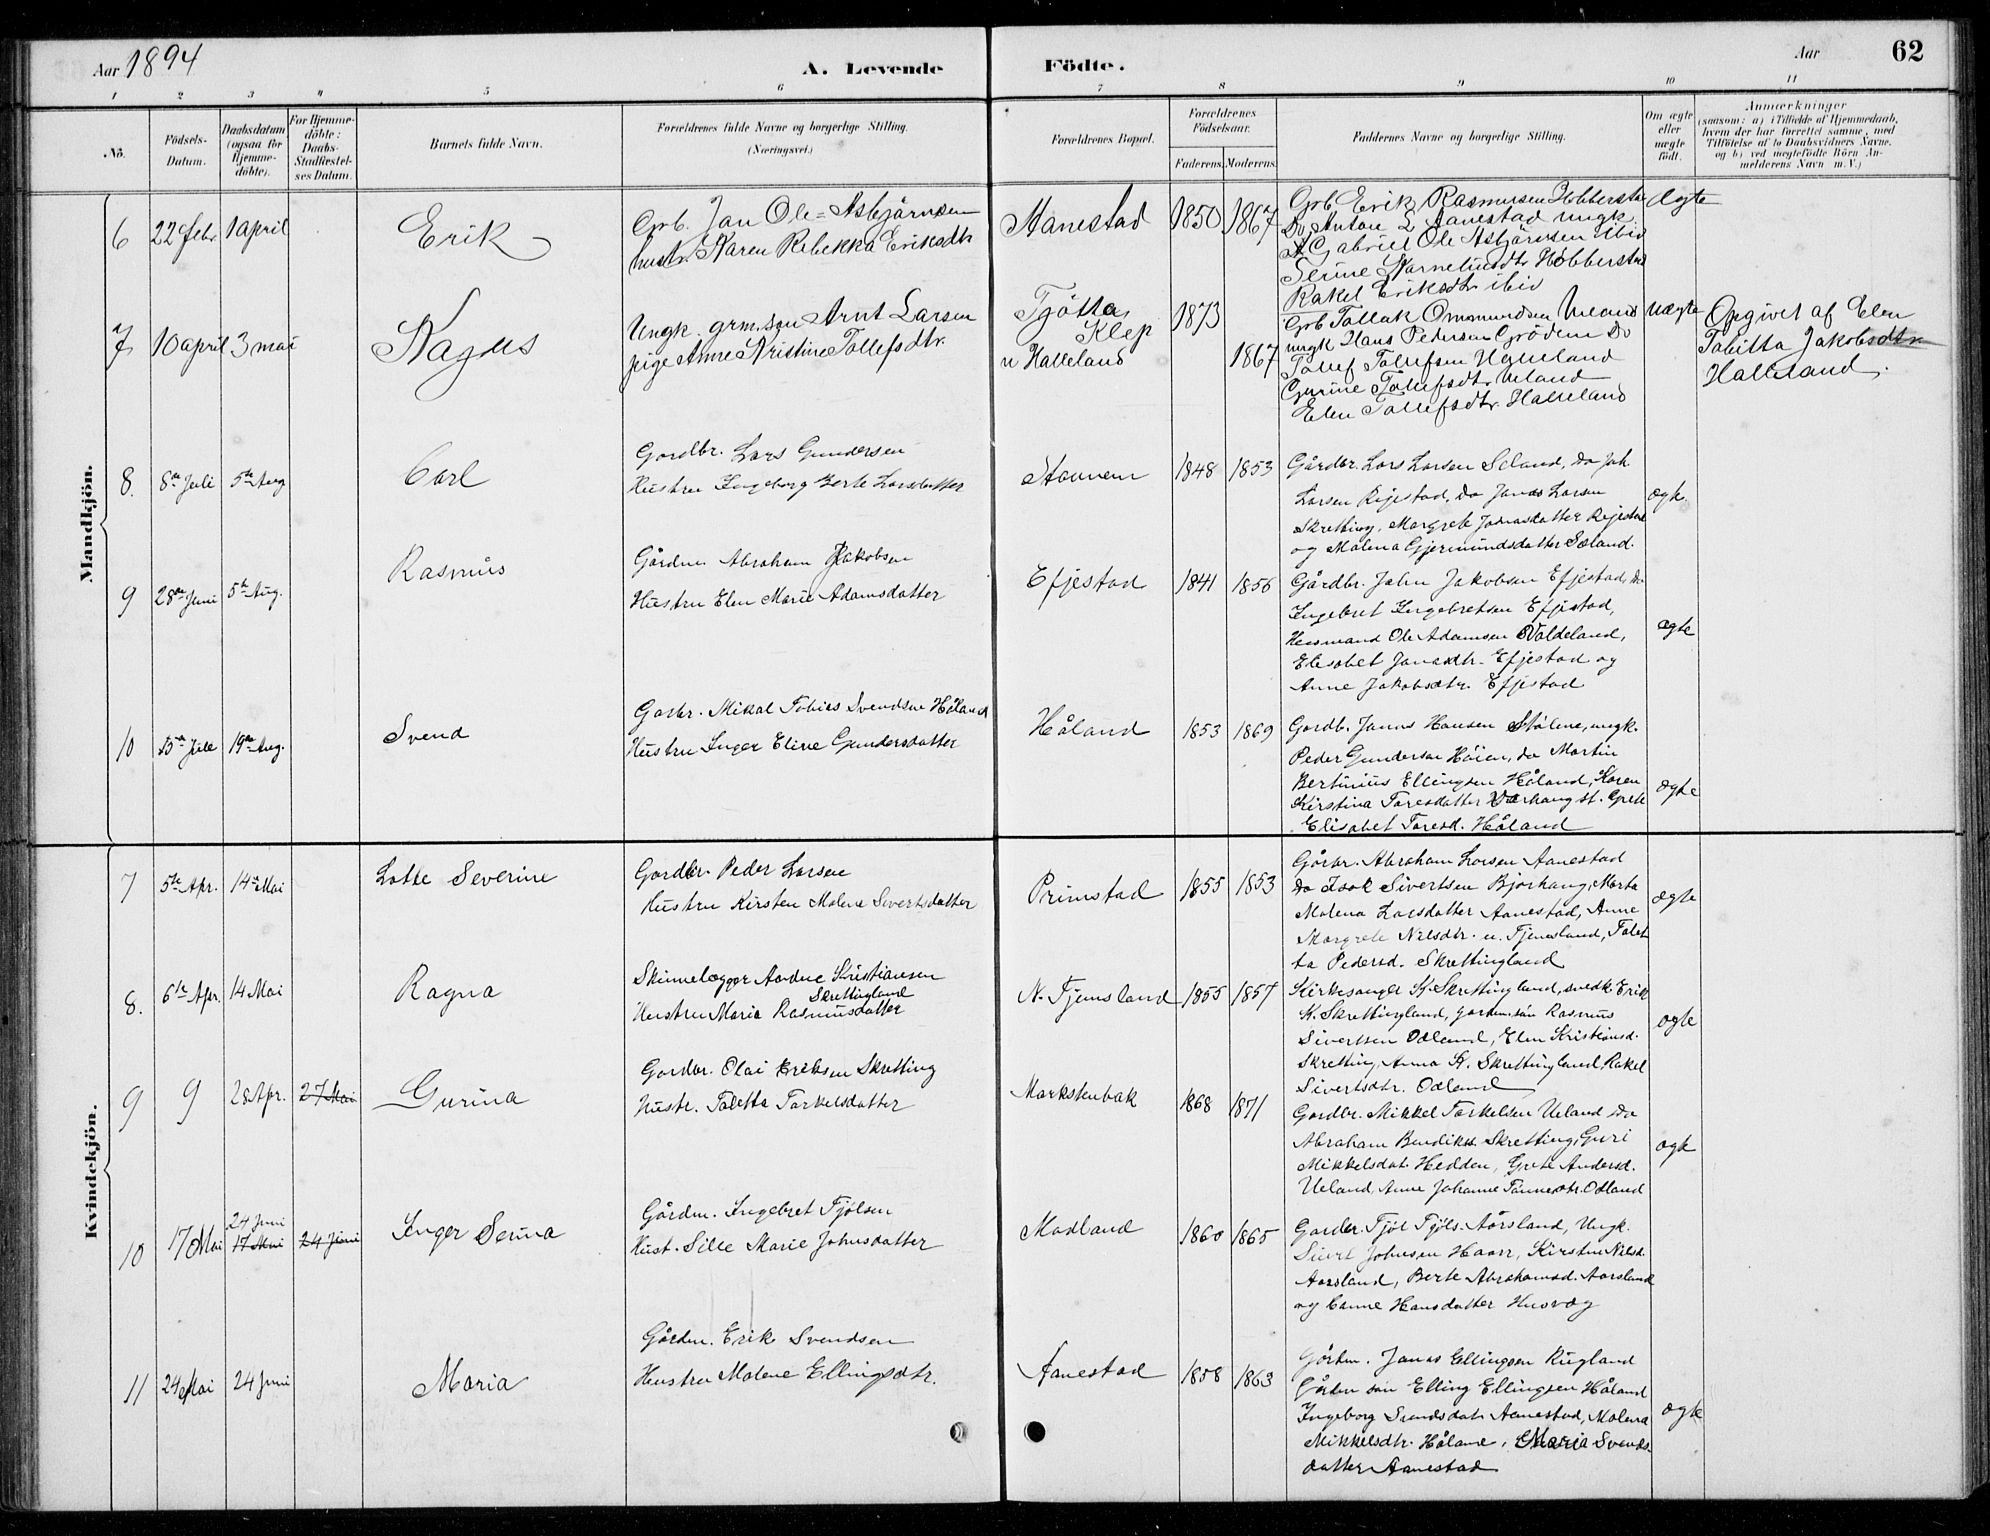 Aar 1894
A. Levende
Födte.
Aar
62
1 2 3 4 5 6 7 8 9 10 11
No.
Födsels-Datum.
Daabsdatum (ogsaa for Hjemme-döbte).
For Hjemme-döbte: Daabs-Stadfæstel-ses Datum.
Barnets fulde Navn.
Forældrenes fulde Navne og borgerlige Stilling.
(Næringsvei.)
Forældrenes Bopæl.
Forældrenes Födselsaar.
Faderens. Moderens.
Faddernes Navne og borgerlige Stilling.
Om ægte eller uægte födt.
Anmærkninger
(saasom: a) i Tilfælde af Hjemmedaab,
hvem der har forrettet samme, med
Tilföielse af to Daabsvidners Navne,
og b) ved uægtefödte Börn An-
melderens Navn m. V.)
Mandkjön.
6 22 febr 1 april Erik
Grb. Jan Ole Asbjörnsen
hustr. Karen Rebekka Eriksdtr
Aanestad 1850 1867
Grb Erik Rasmussen Hobberstad
Do Anton L Aanestad ungk.
Gabriel Ole Asbjörnsen ibid
Serine Kornelius dtr Hobberstad
Rakel Eriksdtr ibid
Ægte
7 10 april 3 mai Magnus
Ungk. grm. sön Arnt Larsen
pige Anne Kristine Tollefsdtr.
Tjötta, Klep
n Halleland
1873
1867
Grb Tollak Omundsen Ueland
ungk Hans Pedersen Grödem Do
Tollef Tollefsen Ueland
Gurine Tollefsdtr Ueland
Elen Tollefsdtr. Halleland
Uægte
Opgivet af Elen
Tabitta Jakobsdtr
Halleland.
8. 8de Juli 5te Aug Carl
Gardbr. Lars Gundersen
Hustru Ingeborg Berte Larsdatter
Stavnem 1848 1853
Gårdbr. Lars Larsen Seland, do Joh
Larsen Rijestad, do Jonas Larsen
Skretting, Margrete Jonasdatter Rijestad
og Malena Gjermundsdatter Sæland.
ægte
9 28de Juni 5te Aug. Rasmus
Gårdm. Abraham Jakobsen
Hustru Elen Marie Adamsdatter
Efjestad 1841 1856
Gårdbr. Jahn Jakobsen Efjestad, do
Ingebret Ingebretsen Efjestad,
Huusmand Ole Adamsen Valdeland,
Elisabet Jonasdtr. Efjestad og
Anne Jakobsdtr. Efjestad
ægte
10 15de Jule 19de Aug. Svend
Garbr. Mikal Tobias Svendsen Håland
Hustru Inger Eline Gundersdatter
Håland 1853 1869
Gardb. Jonas Hansen Stølene, ungk.
Peder Gundersen Höien, do Martin
Bertinius Ellingsen Håland, Karen
Kirstina Taresdatter Varhaug st. Grete
Elisabet Taresd. Håland
ægte
Kvindekjön.
7 5te Apr. 14de Mai Lotte Severine
Gardbr. Peder Larsen
Hustru Kirsten Malene Sivertsdatter
Primstad 1855 1853
Gårbr. Abraham Larsen Aanestad
do Isak Sivertsen Bjorhaug, Marta
Malena Larsdatter Aanestad, Anne
Margrete Nilsdtr. n. Tjemsland, Talet
ta Pedersd. Skrettingland
ægte
8. 6te Apr. 14 Mai Ragna
Skinnelægger Aadne Kristiansen
Skrettingland
Hustru Maria Rasmusdatter
N. Tjemsland 1855 1857
Kirkesanger K. Skrettingland, snedk Erik
K. Skrettingland, gardm. sön Rasmus
Sivertsen Odland, Elen Kristiansd.
Skretting, Anna K. Skrettingland, Rakel
Sivertsdtr. Odland
ægte
9 9 28 Apr. 27 Mai Gurina
Gardbr. Olai Eriksen Skretting
Hustr. Taletta Tarkelsdatter
Markstenbak 1868 1871
Gardbr. Mikkel Tarkelsen Ueland do
Abraham Bendiks. Skretting, Guri
Mikkelsdat. Hedden, Grete Andersd.
Ueland, Anne Johanne Tönnesdtr. Odland
ægte
10 17 Mai 24 Juni
17 Mai 24 Juni Inger Serina
Gårdm. Ingebret Tjölsen
Hust. Sille Marie Johnsdatter
Madland 1860 1865
Gardbr. Tjöl Tjöls. Aårsland, Ungk.
Sivert Johnsen Haar, Kirsten Nilsd.
Aarsland, Berte Abrahamsd. Aarsland
og Canne Hansdatter Husvæg
11 24 Mai 24 Juni Maria
Gårdm. Erik Svendsen
Hustru Malene Ellingsdtr.
Aanestad 1858 1863
Gårdm. Jonas Ellingsen Rugland
Gårdm sön Elling Ellingsen Håland
Ingeborg Svendsdatr Aanestad, Malena
Mikkelsdtr. Håland, Maria Svends-
datter Aanestad
ægte